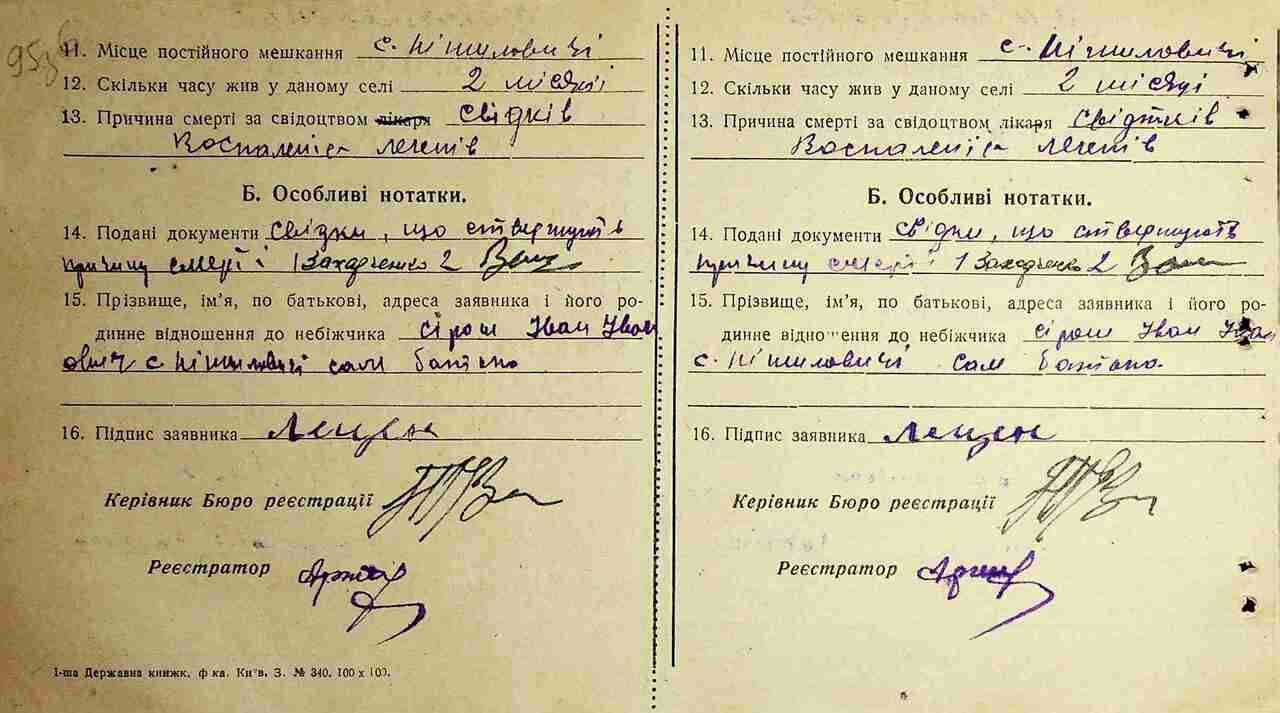 95
11. Місце постійного мешкання с. Нішиловичі
12. Скільки часу жив у даному селі 2 місяці
13. Причина смерті за свідоцтвом лікаря свідків
Воспаленіє легенів
Б. Особливі нотатки.
14. Подані документи свідки, що ствержують
причину смерті 1 Захарченко 2
15. Прізвище, ім’я, по батькові, адреса заявника і його ро-
динне відношення до небіжчика Сірош Іван Іван
ович с Нішиловичі сам батько
16. Підпис заявника
Керівник Бюро реєстрації
Реєстратор
1-ша Державна книжк. ф ка. Київ. З. № 340. 100 х 100.
11. Місце постійного мешкання с. Нішиловичі
12. Скільки часу жив у даному селі 2 місяці
13. Причина смерті за свідоцтвом лікаря свідтків
Воспаленіє легенів
Б. Особливі нотатки.
14. Подані документи свідки, що ствержують
причину смерті 1 Захарченко 2
15. Прізвище, ім’я, по батькові, адреса заявника і його ро-
динне відношення до небіжчика Сірош Іван Іван
с. Нішиловичі сам батько.
16. Підпис заявника
Керівник Бюро реєстрації
Реєстратор